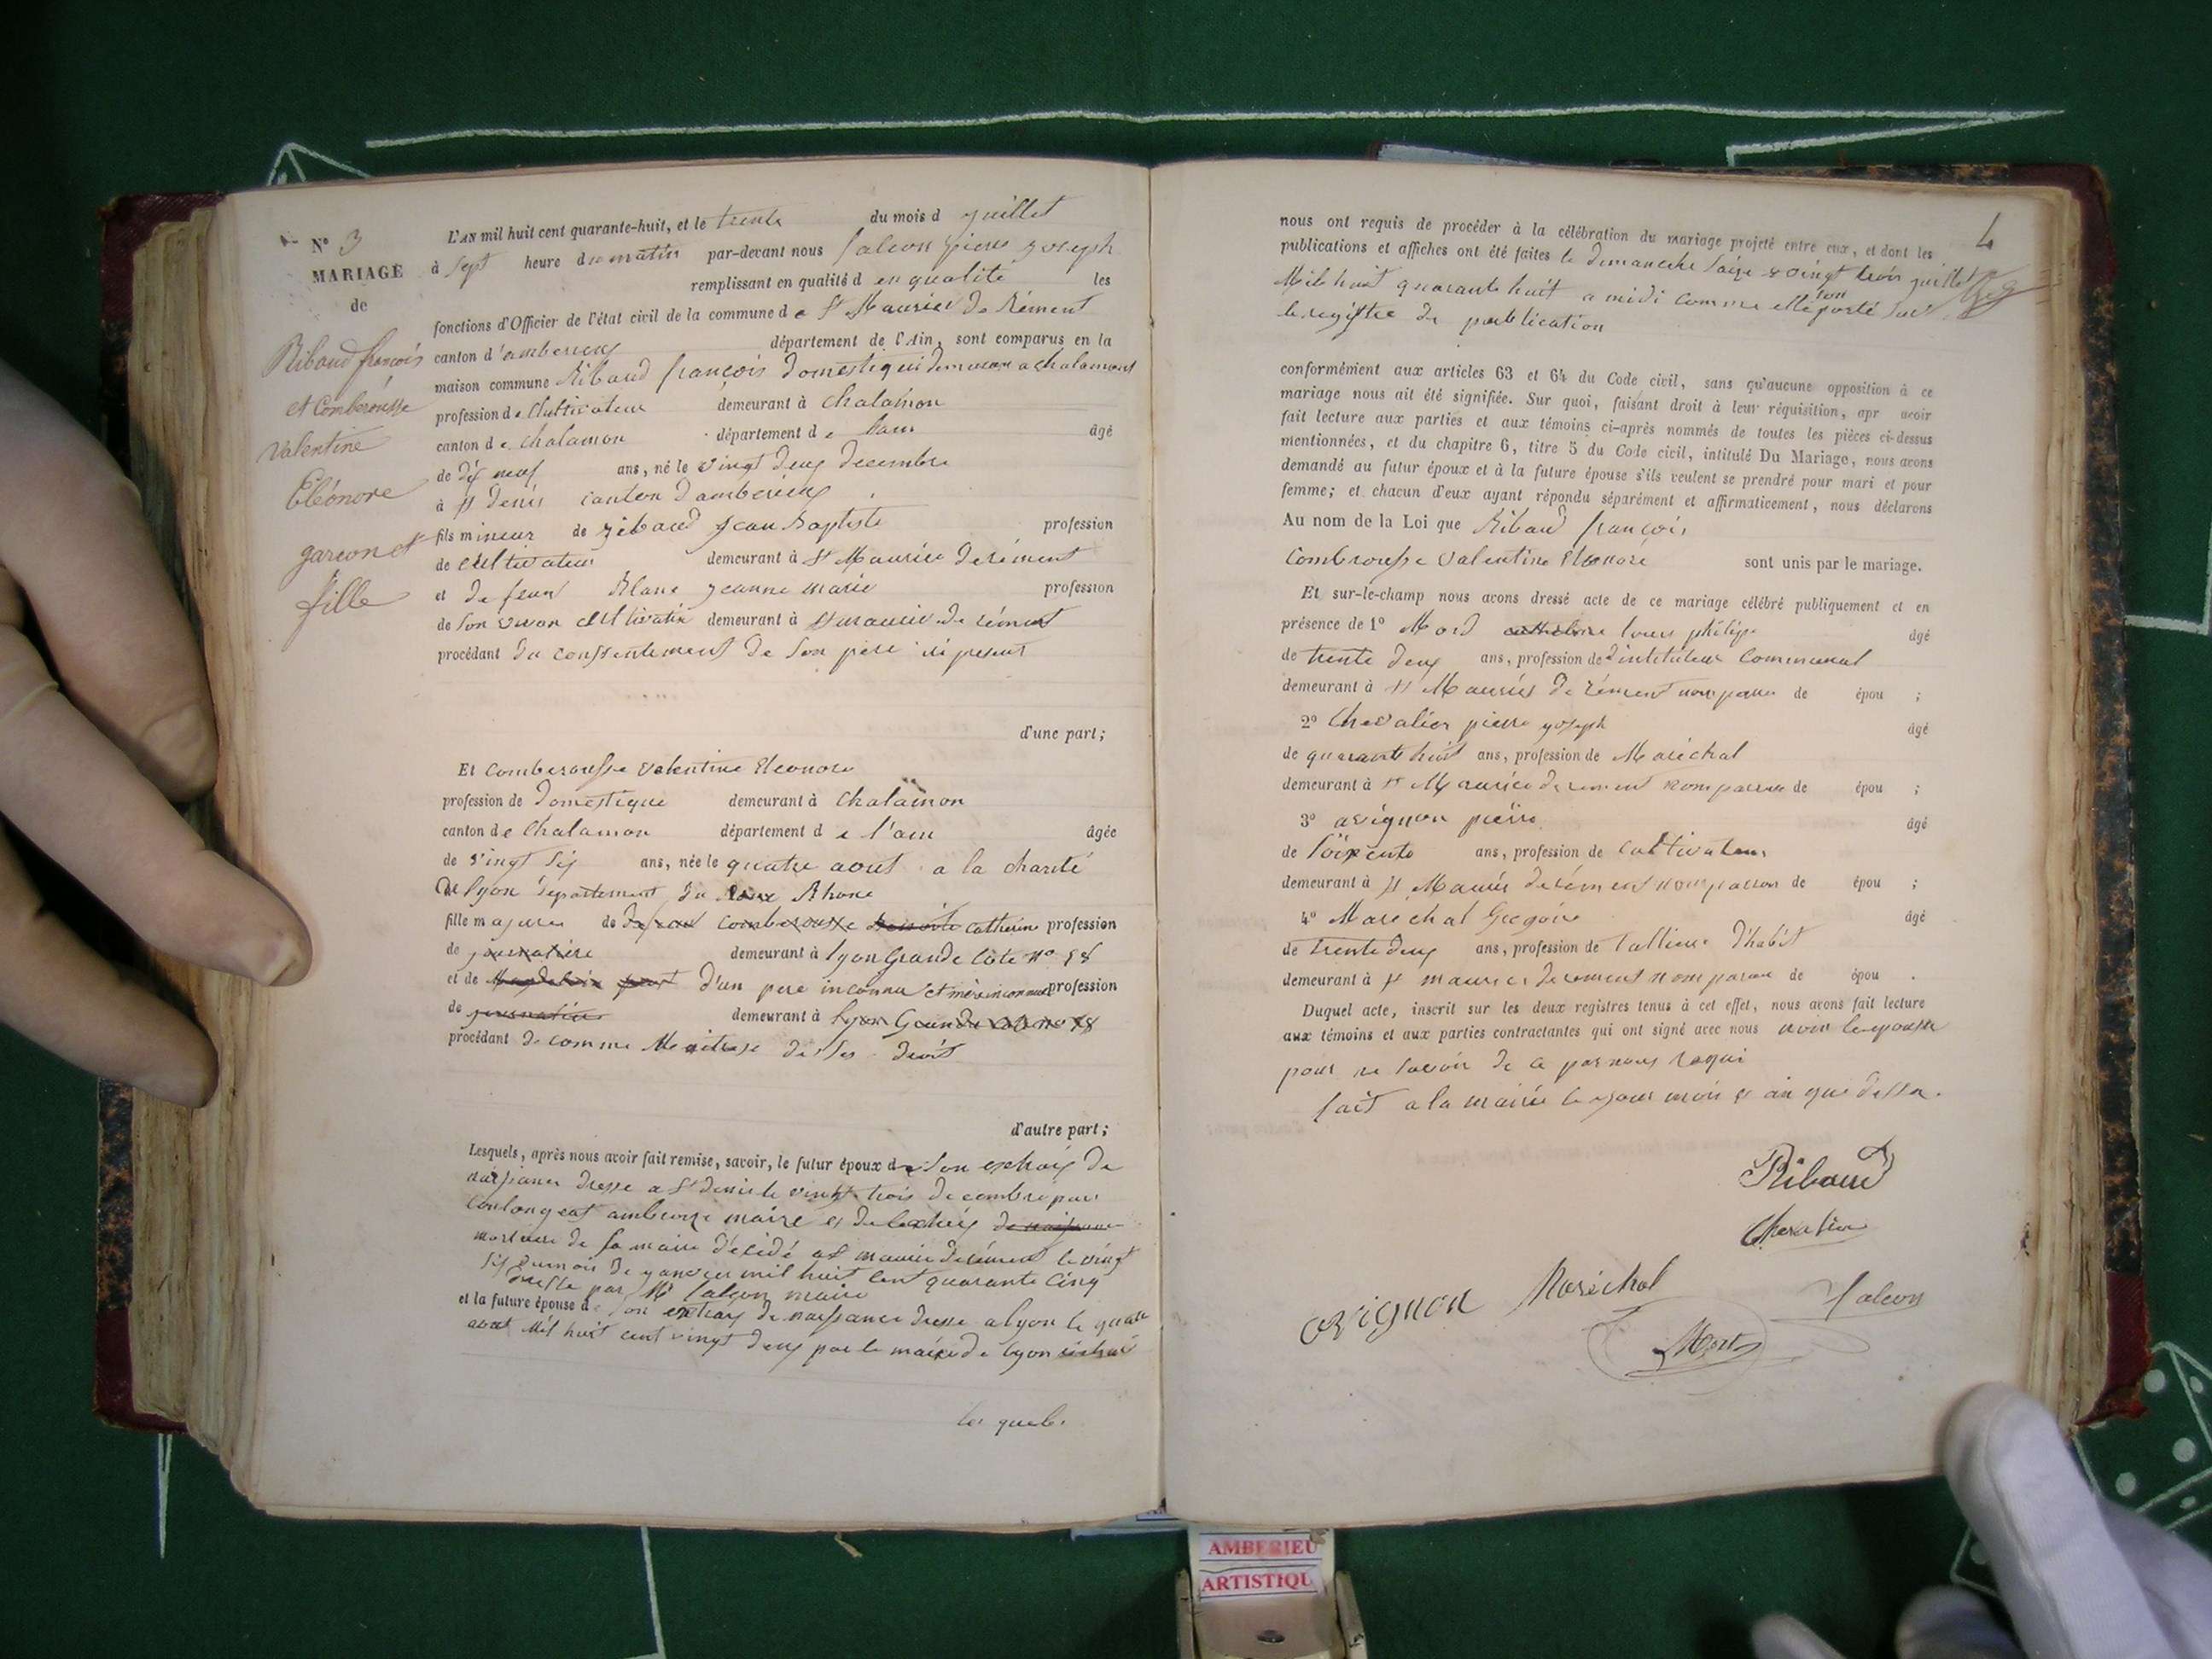 N° 3
MARIAGE
de
Ribaud françois
et Comberousse
Valentine
Eléonore
garcon et
fille
L'AN mil huit cent quarante-huit, et le trente du mois d juillet
à Sept heure du matin par-devant nous falcon pierre joseph
remplissant en qualité d en qualité les
fonctions d'Officier de l'état civil de la commune de St Maurice de Rément
canton d'amberieux département de l'Ain, sont comparus en la
maison commune Ribaud françois domestique demeurant a chalamont
profession de Cultivateur demeurant à Chalamon
canton de Chalamon département de l'ain âgé
de dix neuf ans, né le vingt deux decembre
à St denis canton d'amberieux
fils mineur de Ribaud Jean Baptiste profession
de cultivateur demeurant à St Maurice de rément
et de Blanc jeanne marie profession
de son vivan cultivatrice demeurant à St maurice de rément
procédant du consentement de son père ici présent
d'une part;
Et Comberousse Valentine Eleonore
profession de Domestique demeurant à Chalamon
canton de Chalamon département de l'ain âgée
de vingt six ans, née le quatre aout a la charité
de lyon departement du Rhone
fille majeure de Comberousse Catherine profession
de journalière demeurant à lyon Grande Côte n° 58
et de d'un pere inconnu et mère inconnue profession
de demeurant à lyon Grande Côte n° 58
procédant de comme Maitresse de ses droit
d'autre part;
Lesquels, après nous avoir fait remise, savoir, le futur époux de son extrais de
naissance dresse a St denis le vingt trois decembre par
maire et de lextrais de naissance
mortuaire de sa maire décidé a St maurice de rément le vingt
six du mois de janvier mil huit cent quarante cinq
dresse par Mr falcon maire
et la future épouse de son extrais de naissance dresse a lyon le quatre
aout mil huit cent vingt deux par le maire de lyon
les quels
4
nous ont requis de procéder à la célébration du mariage projeté entre eux, et dont les
publications et affiches ont été faites le dimanche Saize & vingt trois juillet
Mil huit quarante huit a midi comme elle son porté sur
le registre de publication
conformément aux articles 63 et 64 du Code civil, sans qu'aucune opposition à ce
mariage nous ait été signifiée. Sur quoi, faisant droit à leur réquisition, apr avoir
fait lecture aux parties et aux témoins ci-après nommés de toutes les pièces ci-dessus
mentionnées, et du chapitre 6, titre 5 du Code civil, intitulé Du Mariage, nous avons
demandé au futur époux et à la future épouse s'ils veulent se prendre pour mari et pour
femme; et chacun d'eux ayant répondu séparément et affirmativement, nous déclarons
Au nom de la Loi que Ribaud françois
Combrousse Valentine Eleonore sont unis par le mariage.
Et sur-le-champ nous avons dressé acte de ce mariage célébré publiquement et en
présence de 1° louis philippe âgé
de trente deux ans, profession de d'intituteur Communal
demeurant à St Maurice de rément non paren de épou ;
2° Chevalier pierre joseph âgé
de quarante huit ans, profession de Maréchal
demeurant à St Maurice de rément non paren de épou ;
3° avignon pierre âgé
de ans, profession de Cultivateur
demeurant à St Maurice de rément non paren de épou ;
4° Maréchal Gregoire âgé
de trente deux ans, profession de tallieur d'habit
demeurant à St maurice de rément non paren de épou .
Duquel acte, inscrit sur les deux registres tenus à cet effet, nous avons fait lecture
aux témoins et aux parties contractantes qui ont signé avec nous non lepouse
pour ne savoir de ce par nous requi
fait a la mairie le jour mois & an que dessu.
Ribaud
Chevalier
avignon
Maréchal
falcon
AMBERIEU
ARTISTIQU